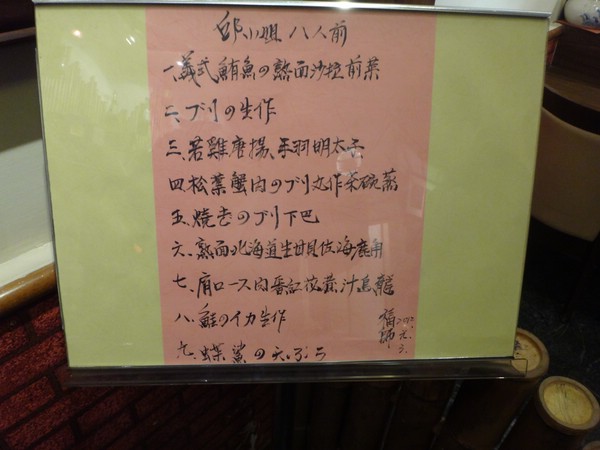 邱小姐 八人前
一、義式鮪魚の熟面沙拉前菜
二、ブリの生作
三、若雞唐揚、手羽明太子
四、松葉蟹肉のブリ丸作茶碗蒸
五、焼きのブリ下巴
六、熟面北海道生甘貝佐海鹿角
七、肩ロース肉番紅花蕾汁烏龍
八、鮭のイカ生作
九、蝶鯊の天ぷら